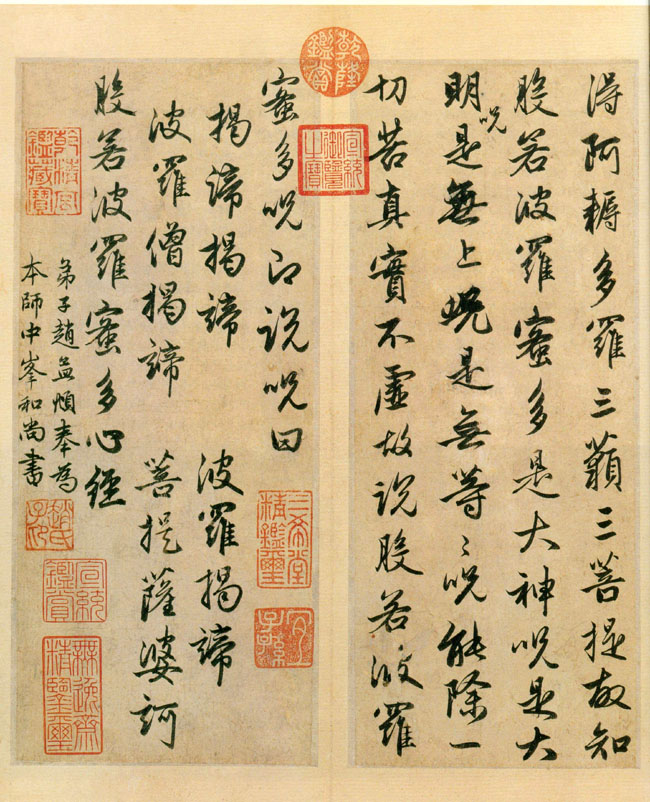 得阿耨多羅三藐三菩提故知
般若波羅蜜多是大神咒是大
明咒是無上咒是無等〻咒能除一
切苦真實不虛故說般若波羅
蜜多咒即說咒曰
揭諦揭諦 波羅揭諦
波羅僧揭諦 菩提薩婆訶
般若波羅蜜多心經
弟子趙孟頫奉為
本師中峯和尚書
乾隆鑑賞
宣統御覽之寶
乾清宮鑑藏寶
三希堂精鑑璽
宜子孫
趙氏子昂
宣統鑑賞
無逸齋精鑒璽